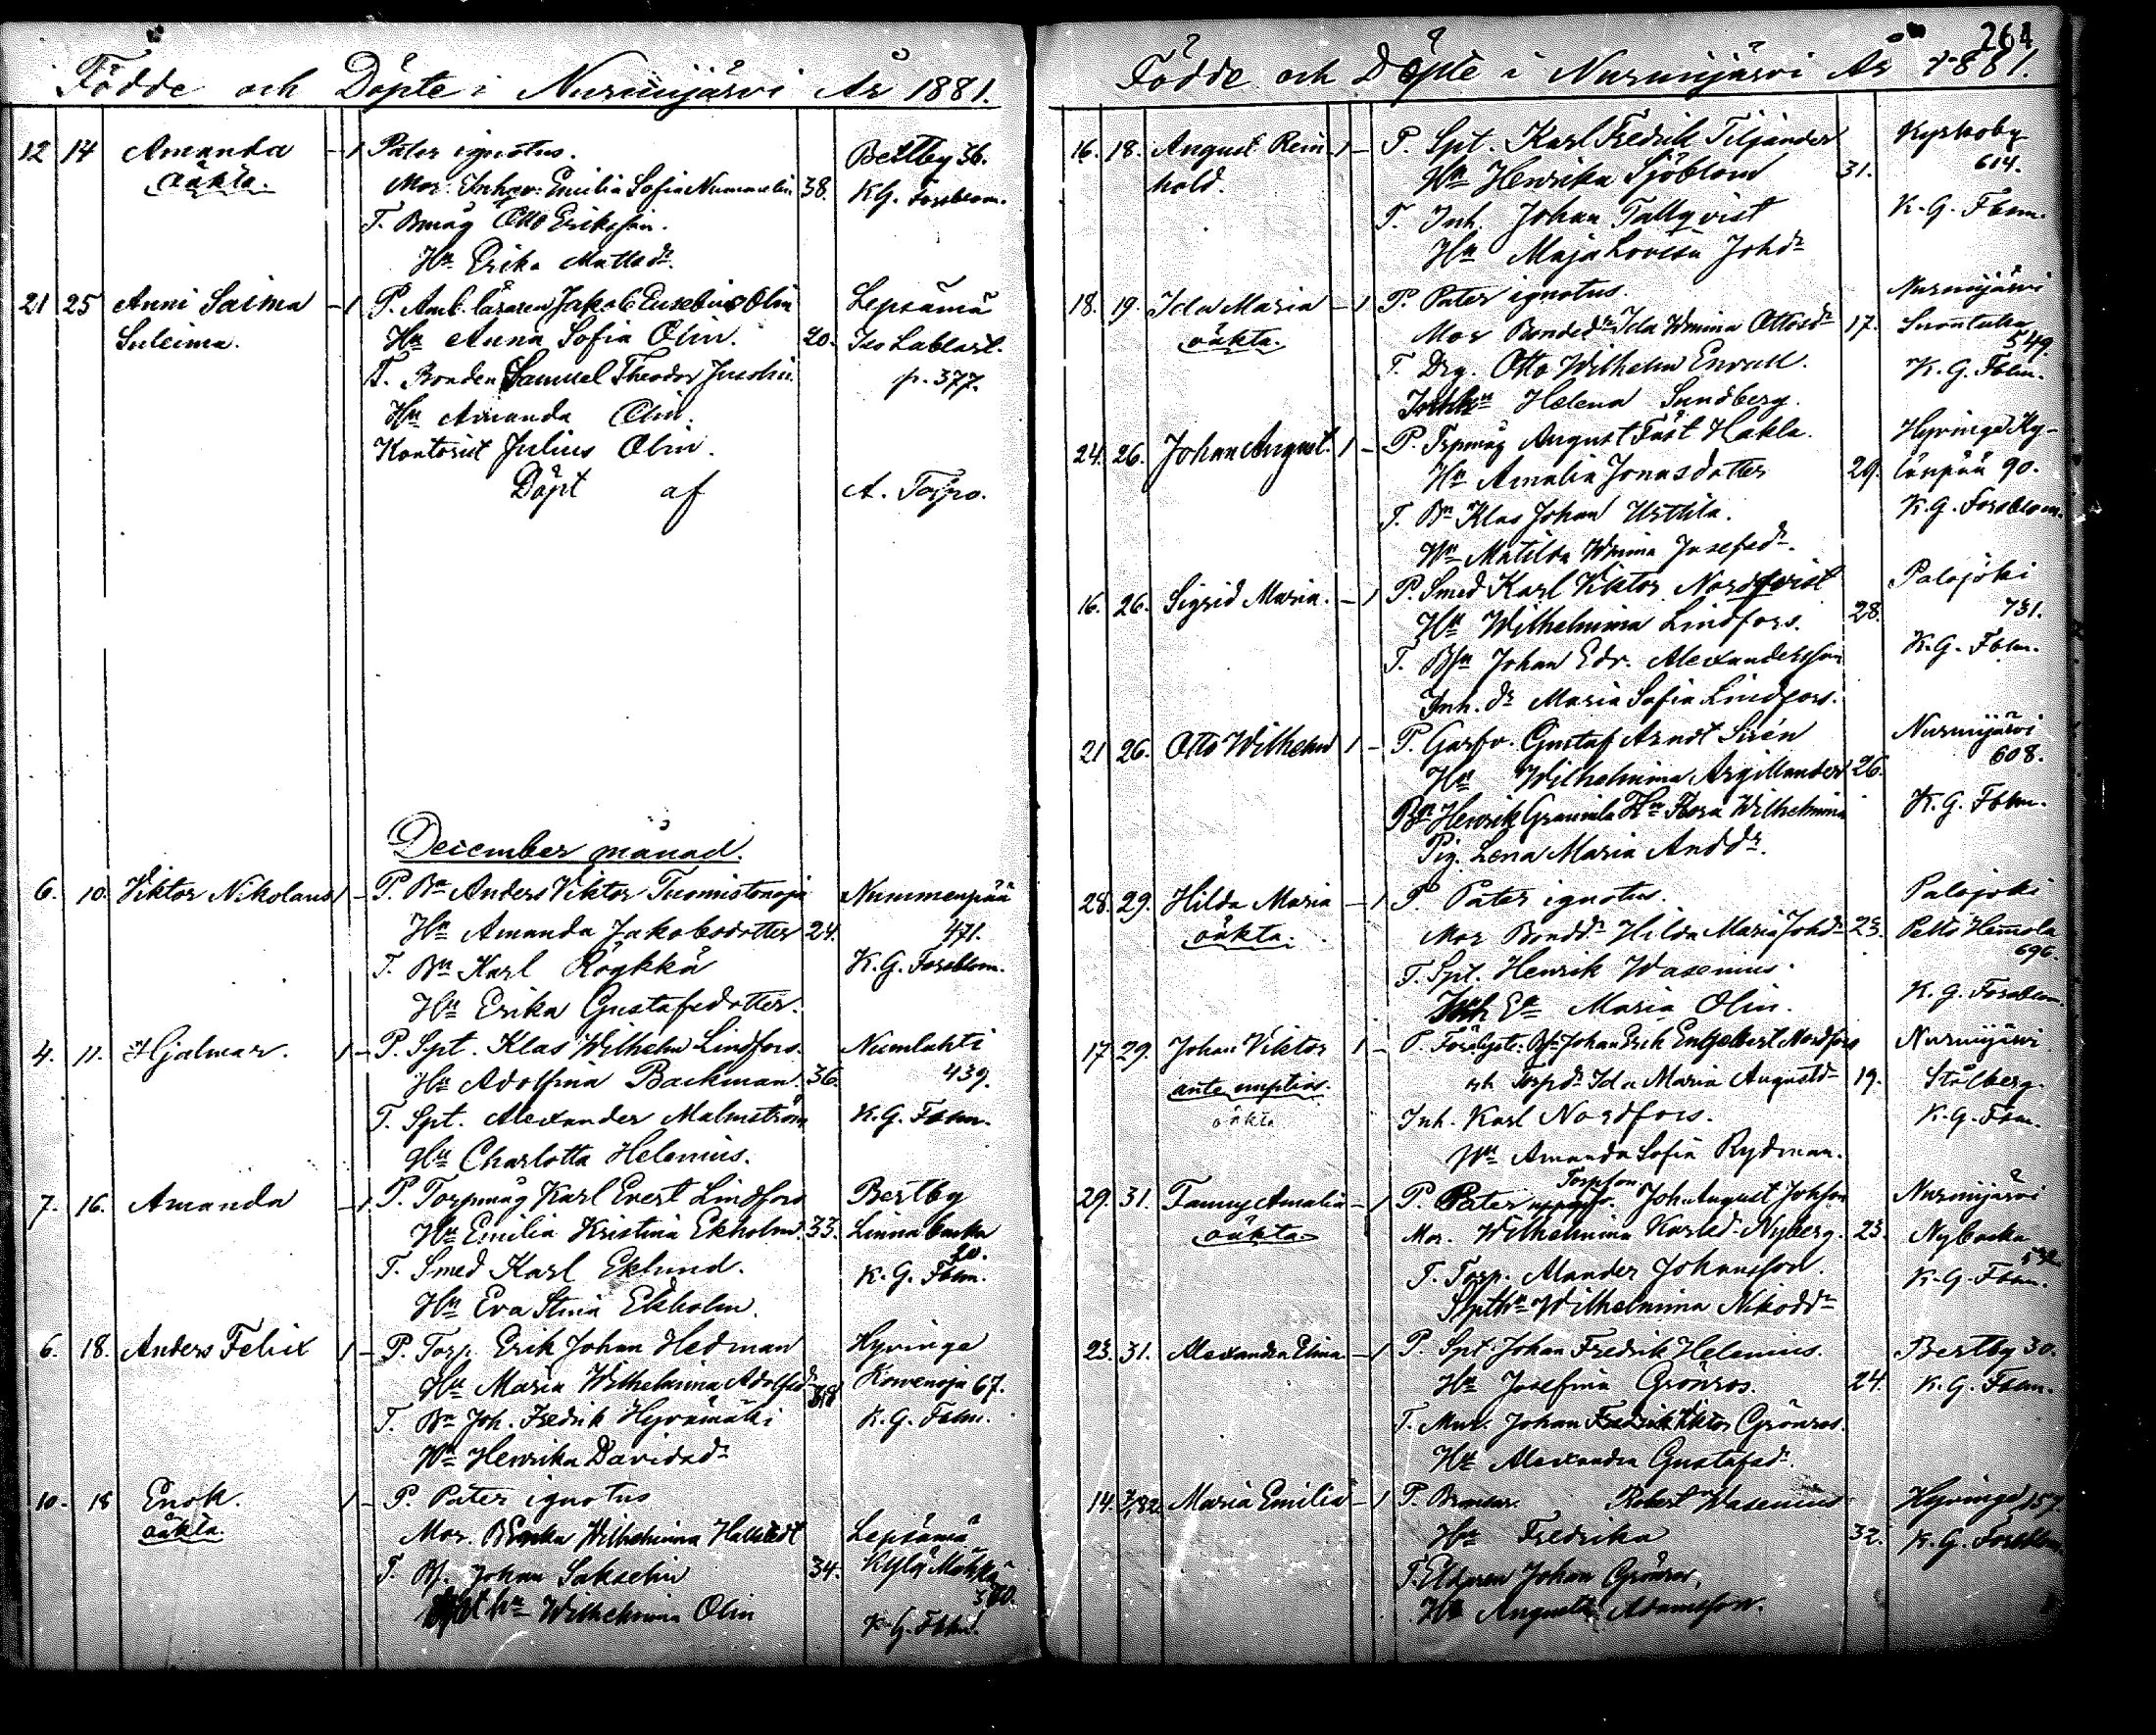 Födde och Döpte i Nurmijärvi År 1881.
12 14 Amanda - 1 Pater ignotus. Bertby 36.
oäkta. Mor. Inhqv: Emilia Sofia Nummelin 38. K.G. Forsblom.
T. Bmåg Otto Eriksson.
Hu Erika Mattsdr.
21 25 Anni Saima - 1 P. Amb. läraren Jakob Eusebius Olin Lepsämä
Suleima. Hu Anna Sofia Olin. 20. Iso Labbart.
T. Bonden Samuel Theodor p. 377.
Hu Amanda Olin.
Kontorist Julius Olin.
Döpt af A. Törpo.
December månad.
6. 10. Viktor Nikolaus 1 - P. Bn Anders Viktor Tuomistonoja Nummenpää
Hu Amanda Jakobsdotter 24. 471.
T. Bn Karl Röykkä K.G. Forsblom.
Hu Erika Gustafsdotter.
4. 11. Hjalmar. 1 - P. Spt. Klas Wilhelm Lindfors. Numlahti
Hu Adolfina Backman. 36. 439.
T. Spt. Alexander Malmström K.G. Fblm.
Hu Charlotta Helenius.
7. 16. Amanda - 1 P. Torpmåg Karl Evert Lindfors Bertby
Hu Emilia Kristina Ekholm. 33. Linnabacka
20.
T. Smed Karl Eklund. K.G. Fblm.
Hu Eva Stina Ekholm.
6. 18. Anders Felix 1 - P. Torp. Erik Johan Hedman Hyvinge
Hu Maria Wilhelmina Adolfsdr 38 Kowenoja 67.
T. Bn Joh. Fredrik Hyvämäki K.G. Fblm.
Hu Henrika Davidsdr
10. 18 Enok. 1 - P. Pater ignotus
oäkta. Mor. Wilhelmina Hallstedt Lepsämä
T. Bs. Johan Sakselin 34. Kylä Mäkkä
380.
hu Wilhelmina Olin K.G. Fblm.
264
Födde och Döpte i Nurmijärvi År 1881.
16. 18. August Rein- 1 - P. Spt. Karl Fredrik Tiljander Kyrkoby
hold. Hu Henrika Sjöblom 31. 614.
T. Inh. Johan Tallqvist K.G. Fblm.
Hu Maja Lovisa Johdr
18. 19. Ida Maria - 1 P. Pater ignotus. Nurmijärvi
oäkta. Mor Bondedr Ida Wmina Ottosdr 17. Suontaka
549.
T. Drg. Otto Wilhelm Envall. K.G. Fblm.
Helena Sundberg.
24. 26. Johan August. 1 - P. Trpmåg August Fäst Hakla. Hyvinge Ky-
Hu Amalia Jonasdotter 29. länpää 90.
T. Bn Klas Johan Urttila. K.G. Forsblom.
Hu Matilda Wmina Josefsdr.
16. 26. Sigrid Maria. - 1 P. Smed Karl Viktor Nordqvist Palojoki
Hu Wilhelmina Lindfors. 28. 731.
T. Bsn Johan Edv. Alexandersson K.G. Fblm.
Inh. dr Maria Sofia Lindfors.
21 26. Otto Wilhelm 1 - P. Garfv. Gustaf Arndt Sirén Nurmijärvi
Hu Wilhelmina Argillander 26. 608.
Bn Henrik Hu Flora Wilhelmina K.G. Fblm.
Pig. Lena Maria Anddr.
28. 29. Hilda Maria - 1 P. Pater ignotus. Palojoki
oäkta. Mor Bonddr Hilda Maria Johdr 23. Petto Hemola
696.
T. Spt. Henrik Wasenius. K.G. Forsblom.
Inh Ea Maria Olin.
17. 29. Johan Viktor 1 - P. Johan Erik Engelbert Nordfors Nurmijärvi
ante nuptias. och Torpdr Ida Maria Augustdr 19. Stålberg.
oäkta Inh. Karl Nordfors. K.G. Fblm.
Hu Amanda Sofia Rydman.
Torpson
29. 31. Fanny Amalia - 1 P. Pater Joh. August Johsson Nurmijärvi
oäkta Mor. Wilhelmina Karlsd. Nyberg. 23. Nybacka
532
T. Torp. Alander Johansson. K.G. Fblm.
Spthu Wilhelmina Nikoddr
23. 31. Alexandra Elina - 1 P. Spt. Johan Fredrik Helenius. Bertby 30.
Hu Josefina Grönros. 24. K.G. Fblm.
T. Mur. Johan Fredrik Viktor Grönros.
Hu Alexandra Gustafsdr.
14. 7/1 82 Maria Emilia - 1 P. Bromsar. Robert Wasenius Hyvinge 157
Hu Fredrika 32. K.G. Forsblom.
T. Eldaren Johan Grönros,
Hu Augusta Adamsson.